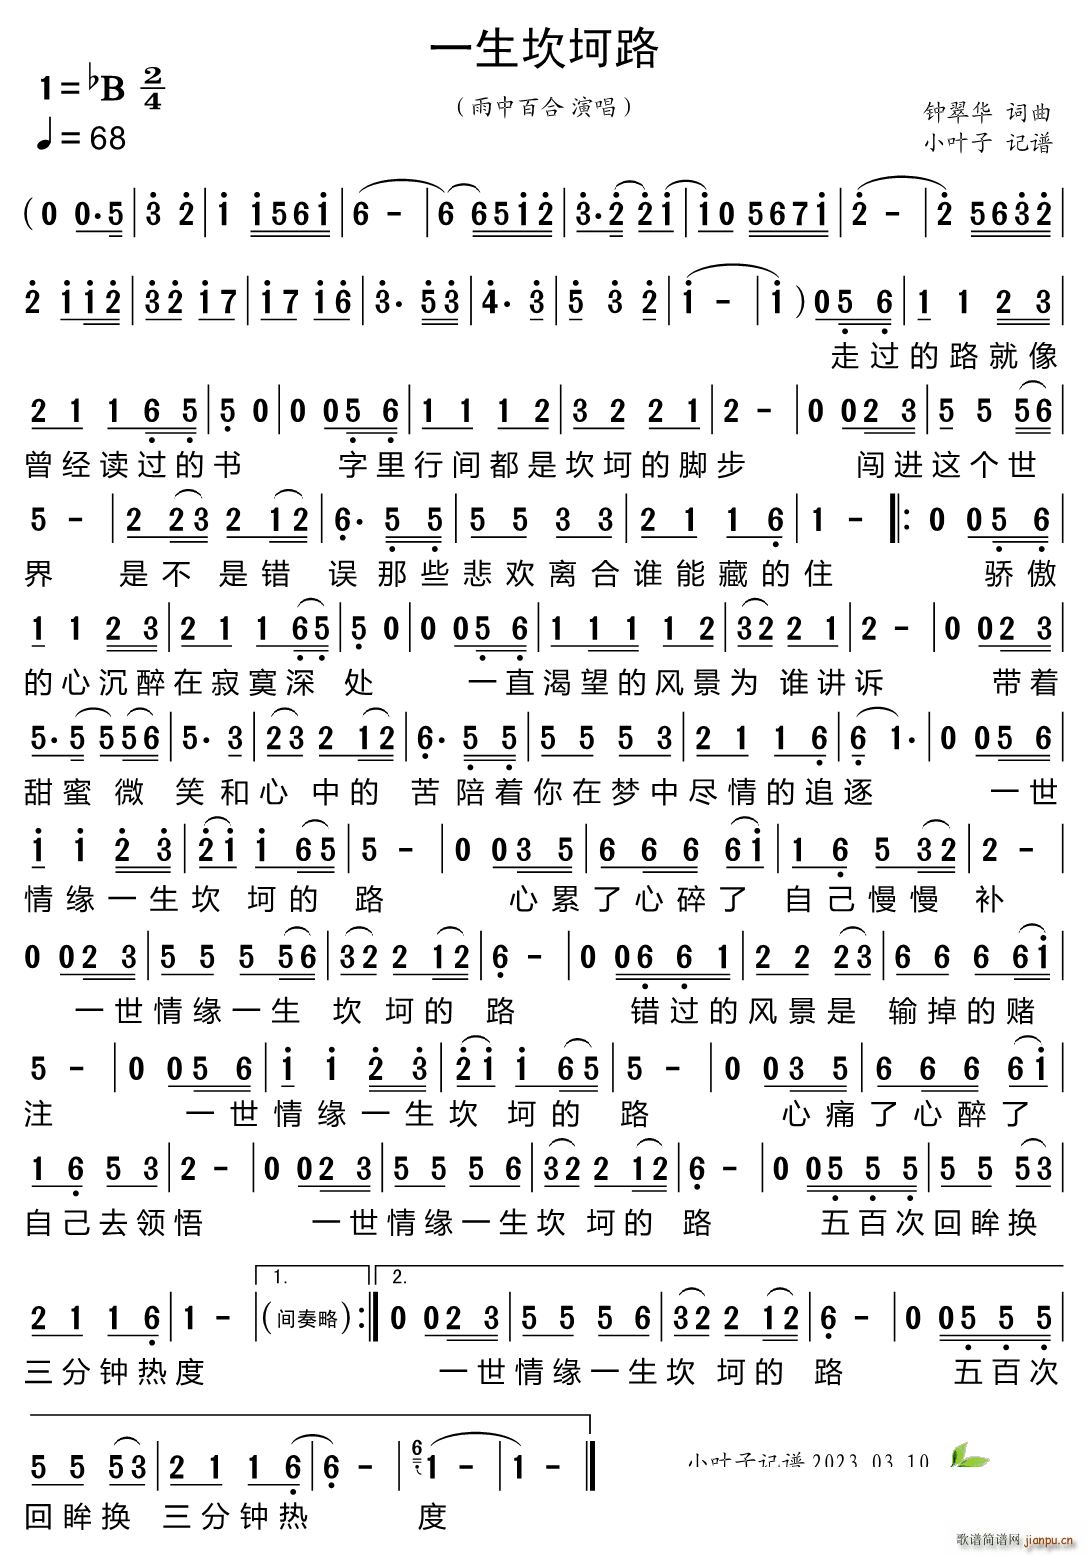 一生坎坷路
1=♭B 2/4
（雨中百合 演唱）
钟翠华 词曲
♩=68
小叶子 记谱
(0 0·5|3 2|1 1561|6 -|6 6512|3·2 21|10 5671|2 -|2 5632|
2 112|32 17|17 16|3· 53|4· 3|5 3 2|1 -|1)056|1 1 23|
走过的路就像
21 165|50|0 056|11 12|32 21|2 -|0 023|5 5 56|
曾经读过的书 字里行间都是坎坷的脚步 闯进这个世
5 -|2 23 2 12|6· 55|55 33|21 16|1 -|:0 056|
界 是不是错 误那些悲欢离合谁能藏的住 骄傲
1 1 23|21 165|50|0 056|111 12|32 21|2 -|0 023|
的心沉醉在寂寞深 处 一直渴望的风景为 谁讲诉 带着
5·5 556|5· 3|23 212|6· 55|55 53|21 16|6 1·|0 056|
甜蜜 微 笑和心 中的 苦陪着你在梦中尽情的追逐 一世
1 1 23|21 165|5 -|0 035|66 661|16 532|2 -|
情缘一生坎 坷的 路 心累了心碎了 自己慢慢 补
0 023|55 556|32 212|6 -|0 0661|22 23|66 661|
一世情缘一生 坎 坷的 路 错过的风景是 输掉的赌
5 -|0 056|1 1 23|21 165|5 -|0 035|66 661|
注 一世情缘一生坎 坷的 路 心痛了心醉了
16 53|2 -|0 023|55 56|32 212|6 -|0 0555|55 53|
自己去领悟 一世情缘一生坎 坷的 路 五百次回眸换
1. 2.
21 16|1 -|(间奏略):|0 023|55 56|32 212|6 -|0 0555|
三分钟热度 一世情缘一生坎 坷的 路 五百次
55 53|21 16|6 -|6 1 -|1 -|
小叶子记谱 2023.03.10
回眸换 三分钟热 度
歌谱简谱网 jianpu.cn